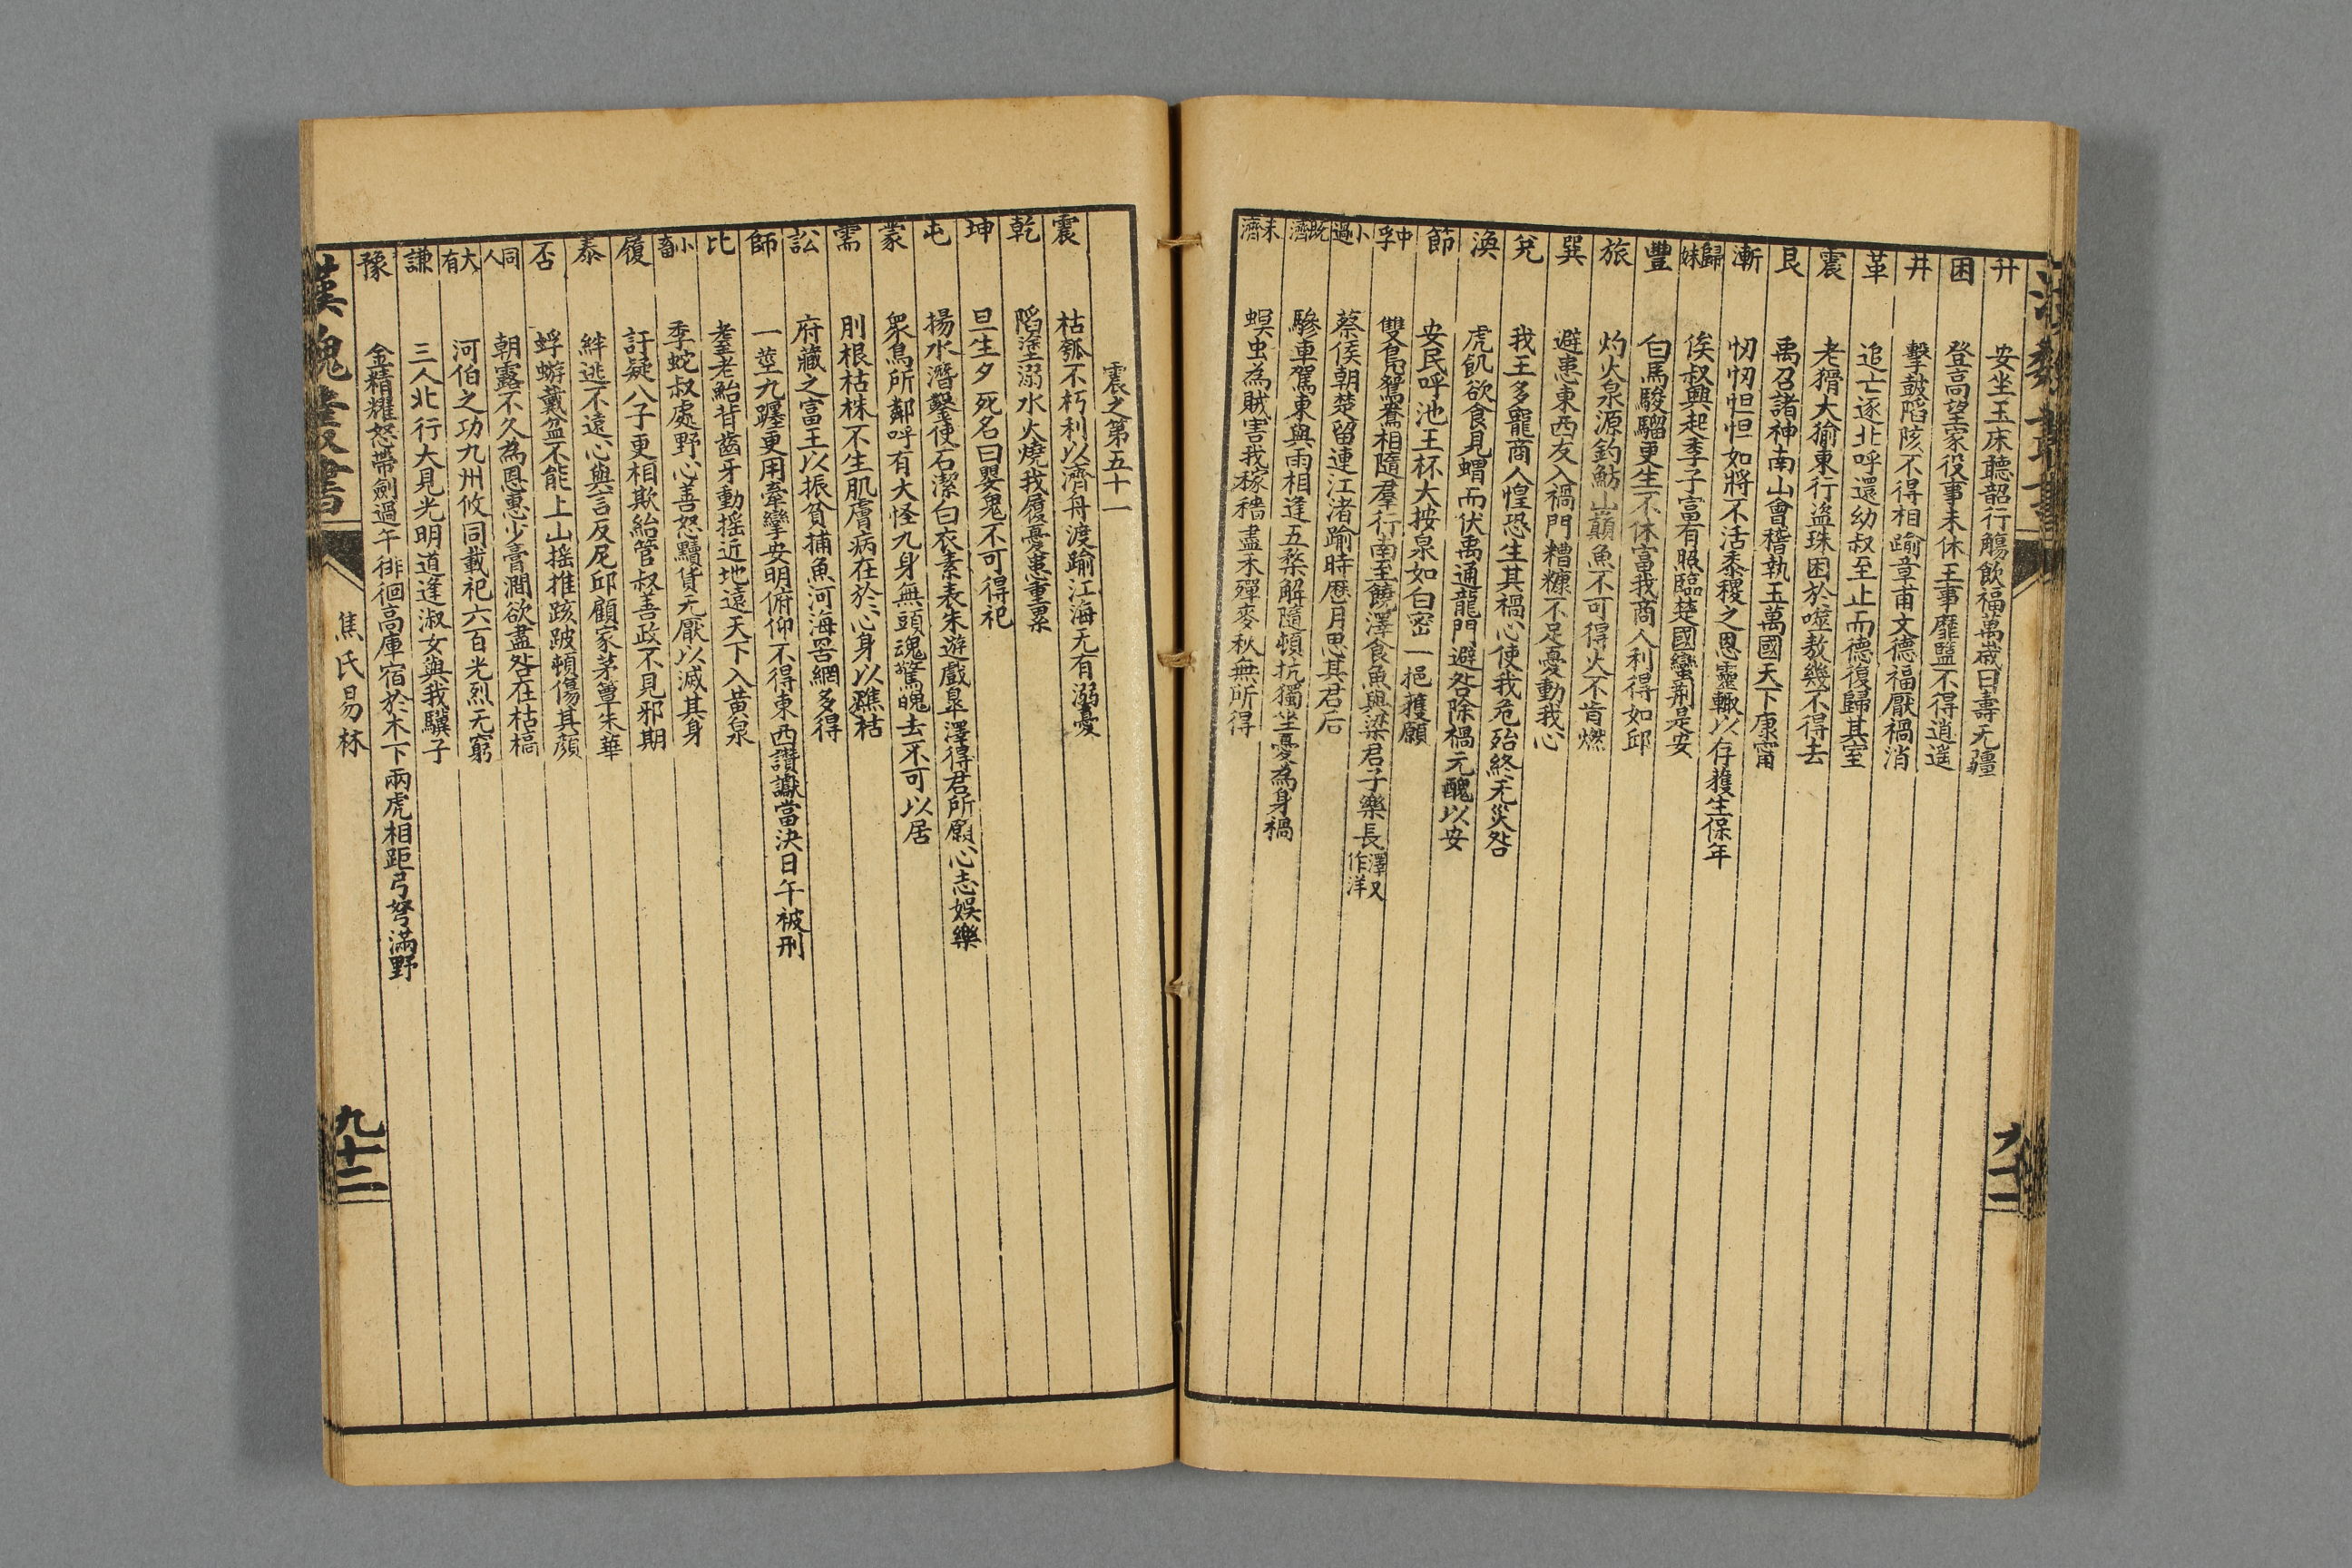 升 安坐玉床聽韶行觴飲福萬歲曰壽无疆
困 登高望家役事未休王事靡盬不得逍遙
井 擊鼓陷陔不得相踰章甫文德福厭禍消
革 追亡逐北呼還幼叔至止而德復歸其室
震 老猾大猾東行盜珠困於噬敖幾不得去
艮 禹召諸神南山會稽執玉萬國天下康甯
漸 忉忉怛怛如將不活黍稷之恩靈輒以存獲生保年
歸妹 俟叔興起季子富有照臨楚國蠻荆是安
豐 白馬駿騮更生不休富我商人利得如邱
旅 灼火泉源釣魴山巔魚不可得火不肯燃
巽 避患東西友入禍門糟糠不足憂動我心
兌 我王多寵商人惶恐生其禍心使我危殆終无災咎
渙 虎飢欲食見蝟而伏禹通龍門避咎除禍元醜以安
節 安民呼池玉杯大按泉如白密一挹獲願
中孚 雙鳬鴛鴦相隨羣行南至饒澤食魚與梁君子樂長澤又作洋
小過 蔡侯朝楚留連江渚踰時歷月思其君后
既濟 驂車駕東與雨相逢五楘解隨頓抗獨坐憂為身禍
未濟 螟虫為賊害我稼穡盡禾殫麥秋無所得
九十二
震之第五十一
震 枯瓠不朽利以濟舟渡踰江海无有溺憂
乾 陷塗溺水火燒我履憂患重累
坤 旦生夕死名曰嬰鬼不可得祀
屯 揚水潛鑿使石潔白衣素表朱遊戲皐澤得君所願心志娛樂
蒙 衆鳥所鄰呼有大怪九身無頭魂驚魄去不可以居
需 刖根枯株不生肌膚病在於心身以醮枯
訟 府藏之富王以振貧捕魚河海罟網多得
師 一莖九躔更用牽攣安明俯仰不得東西讚讞當決日午被刑
比 耋老鮐背齒牙動摇近地遠天下入黃泉
小畜 季蛇叔處野心善怒黷貨无厭以滅其身
履 訐疑八子更相欺紿管叔善政不見邪期
泰 絆逃不遠心與言反尼邱顧家茅簟朱華
否 蜉蝣戴盆不能上山摇推跂跛頓傷其顏
同人 朝露不久為恩惠少膏澗欲盡咎在枯槁
大有 河伯之功九州攸同載祀六百光烈无窮
謙 三人北行大見光明道逢淑女與我驥子
豫 金精耀怒帶劍過午徘徊高庫宿於木下兩虎相距弓弩滿野
漢魏叢書 焦氏易林 九十二